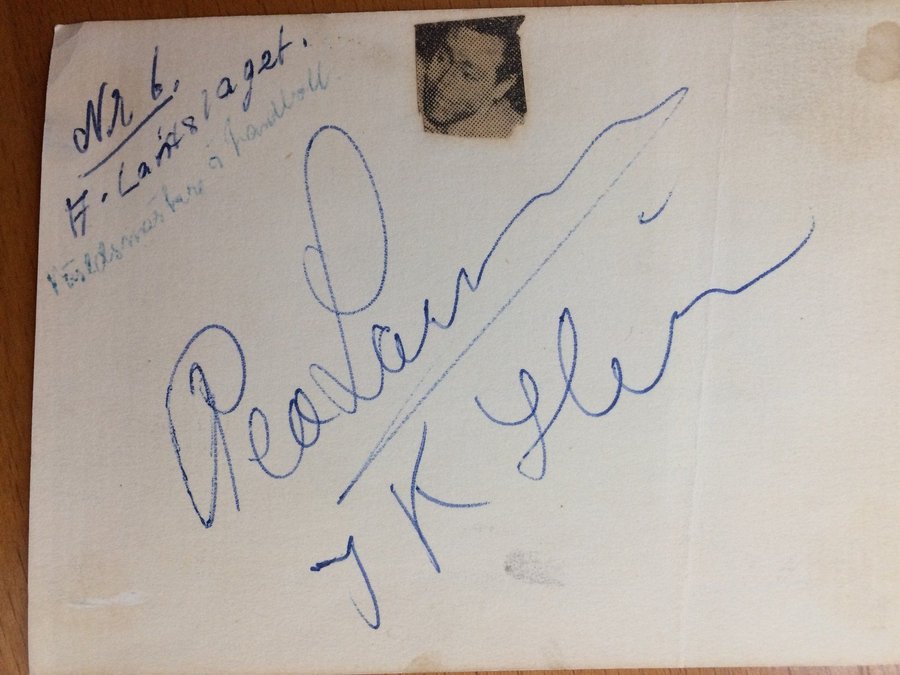 Nr 6.
A. Landslaget.
Världsmästare i handboll.
Peo Larsson
I K Heim